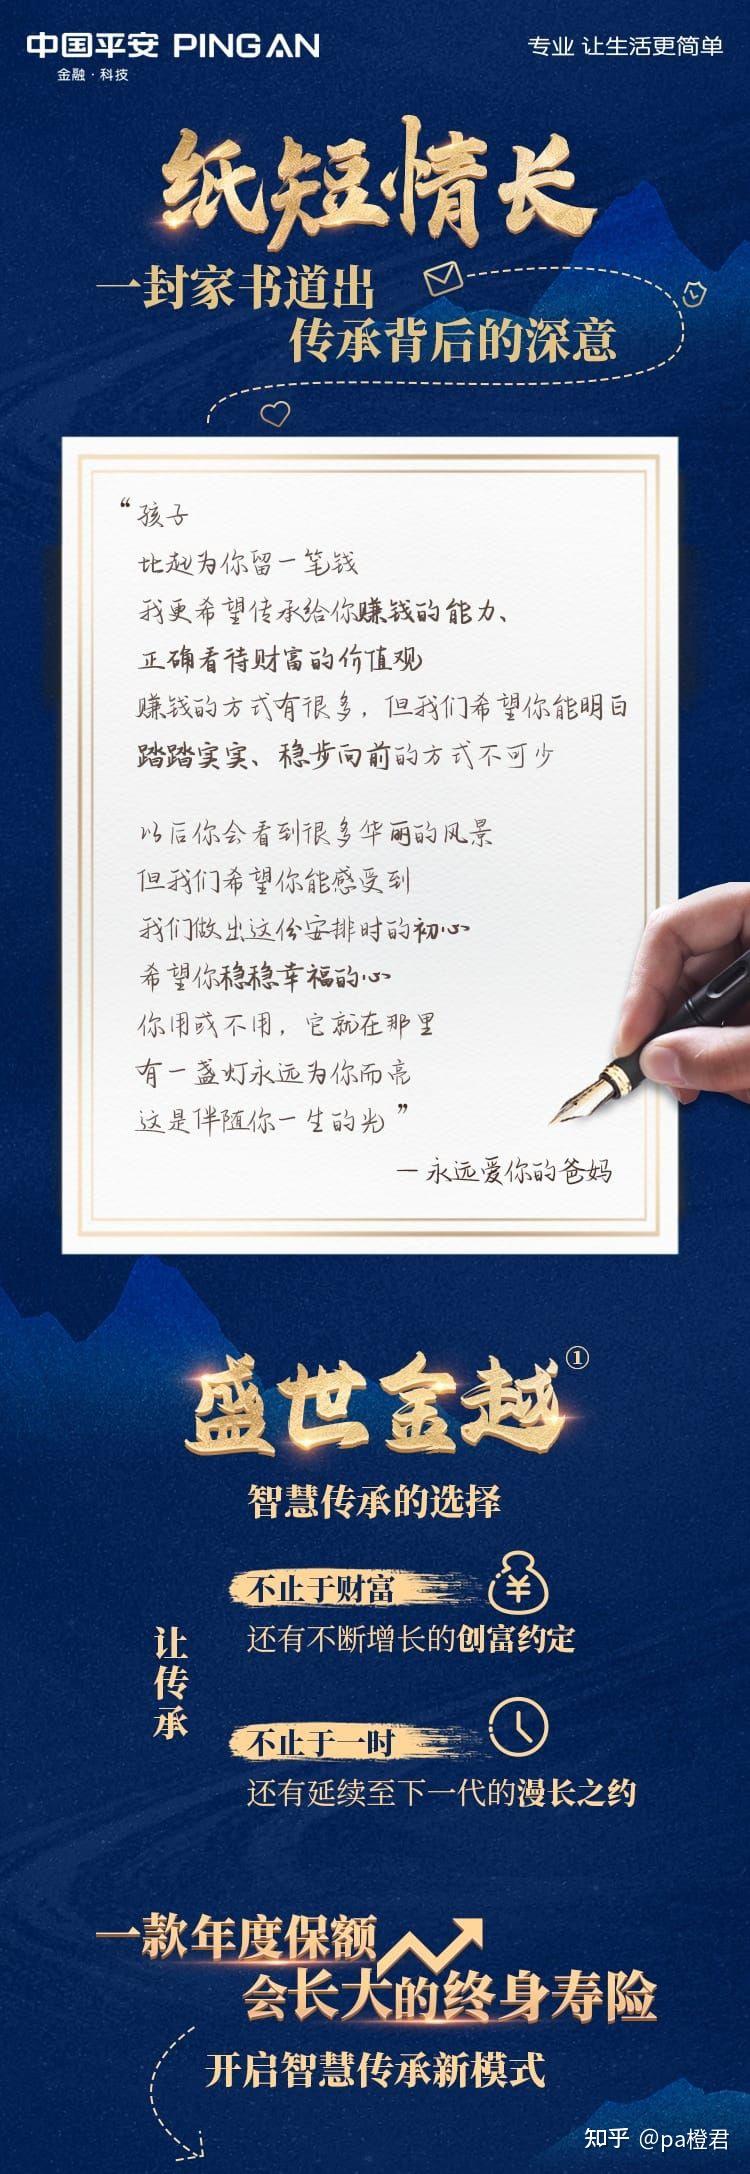 中国平安 PING AN
金融·科技
专业 让生活更简单
纸短情长
一封家书道出
传承背后的深意
“孩子
比起为你留一笔钱
我更希望传承给你赚钱的能力、
正确看待财富的价值观
赚钱的方式有很多，但我们希望你能明白
踏踏实实、稳步向前的方式不可少
以后你会看到很多华丽的风景
但我们希望你能感受到
我们做出这份安排时的初心
希望你稳稳幸福的心
你用或不用，它就在那里
有一盏灯永远为你而亮
这是伴随你一生的光”
—永远爱你的爸妈
盛世金越①
智慧传承的选择
让传承
不止于财富
还有不断增长的创富约定
不止于一时
还有延续至下一代的漫长之约
一款年度保额
会长大的终身寿险
开启智慧传承新模式
知乎 @pa橙君